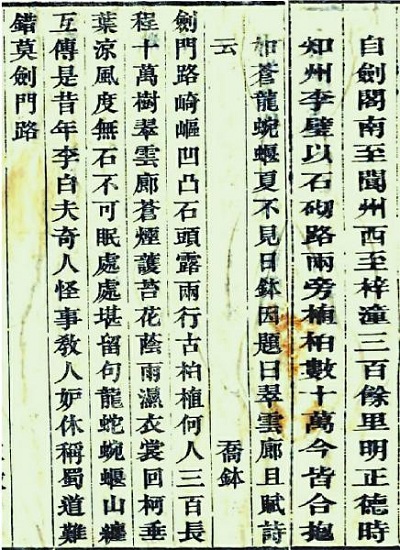 自劍閣南至閬州西至梓潼三百餘里明正德時
知州李璧以石砌路兩旁植柏數十萬今皆合抱
如蒼龍蜿蝘夏不見日鉢因題曰翠雲廊且賦詩
云 喬鉢
劍門路崎嶇凹凸石頭露兩行古柏植何人三百長
程十萬樹翠雲廊蒼煙護苔花蔭雨濕衣裳回柯垂
葉涼風度無石不可眠處處堪留句龍蛇蜿蝘山纏
互傳是昔年李白夫奇人怪事教人妒休稱蜀道難
錯莫劍門路